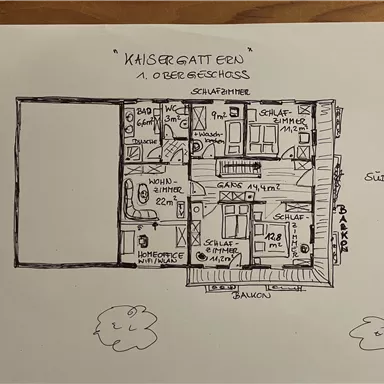 "KAISERGATTERN"
1. OBERGESCHOSS
SCHLAFZIMMER
BAD
6,6m²
WC
3m²
9m²
+Wasch-
becken
SCHLAF-
ZIMMER
11,2m²
DUSCHE
WOHN-
ZIMMER
22m²
GANG 14,4m²
HOMEOFFICE
WIFI/WLAN
SCHLAF-
ZIMMER
11,2m²
SCHLAF-
ZIMMER
12,8
m²
BALKON
BALKON
SÜD